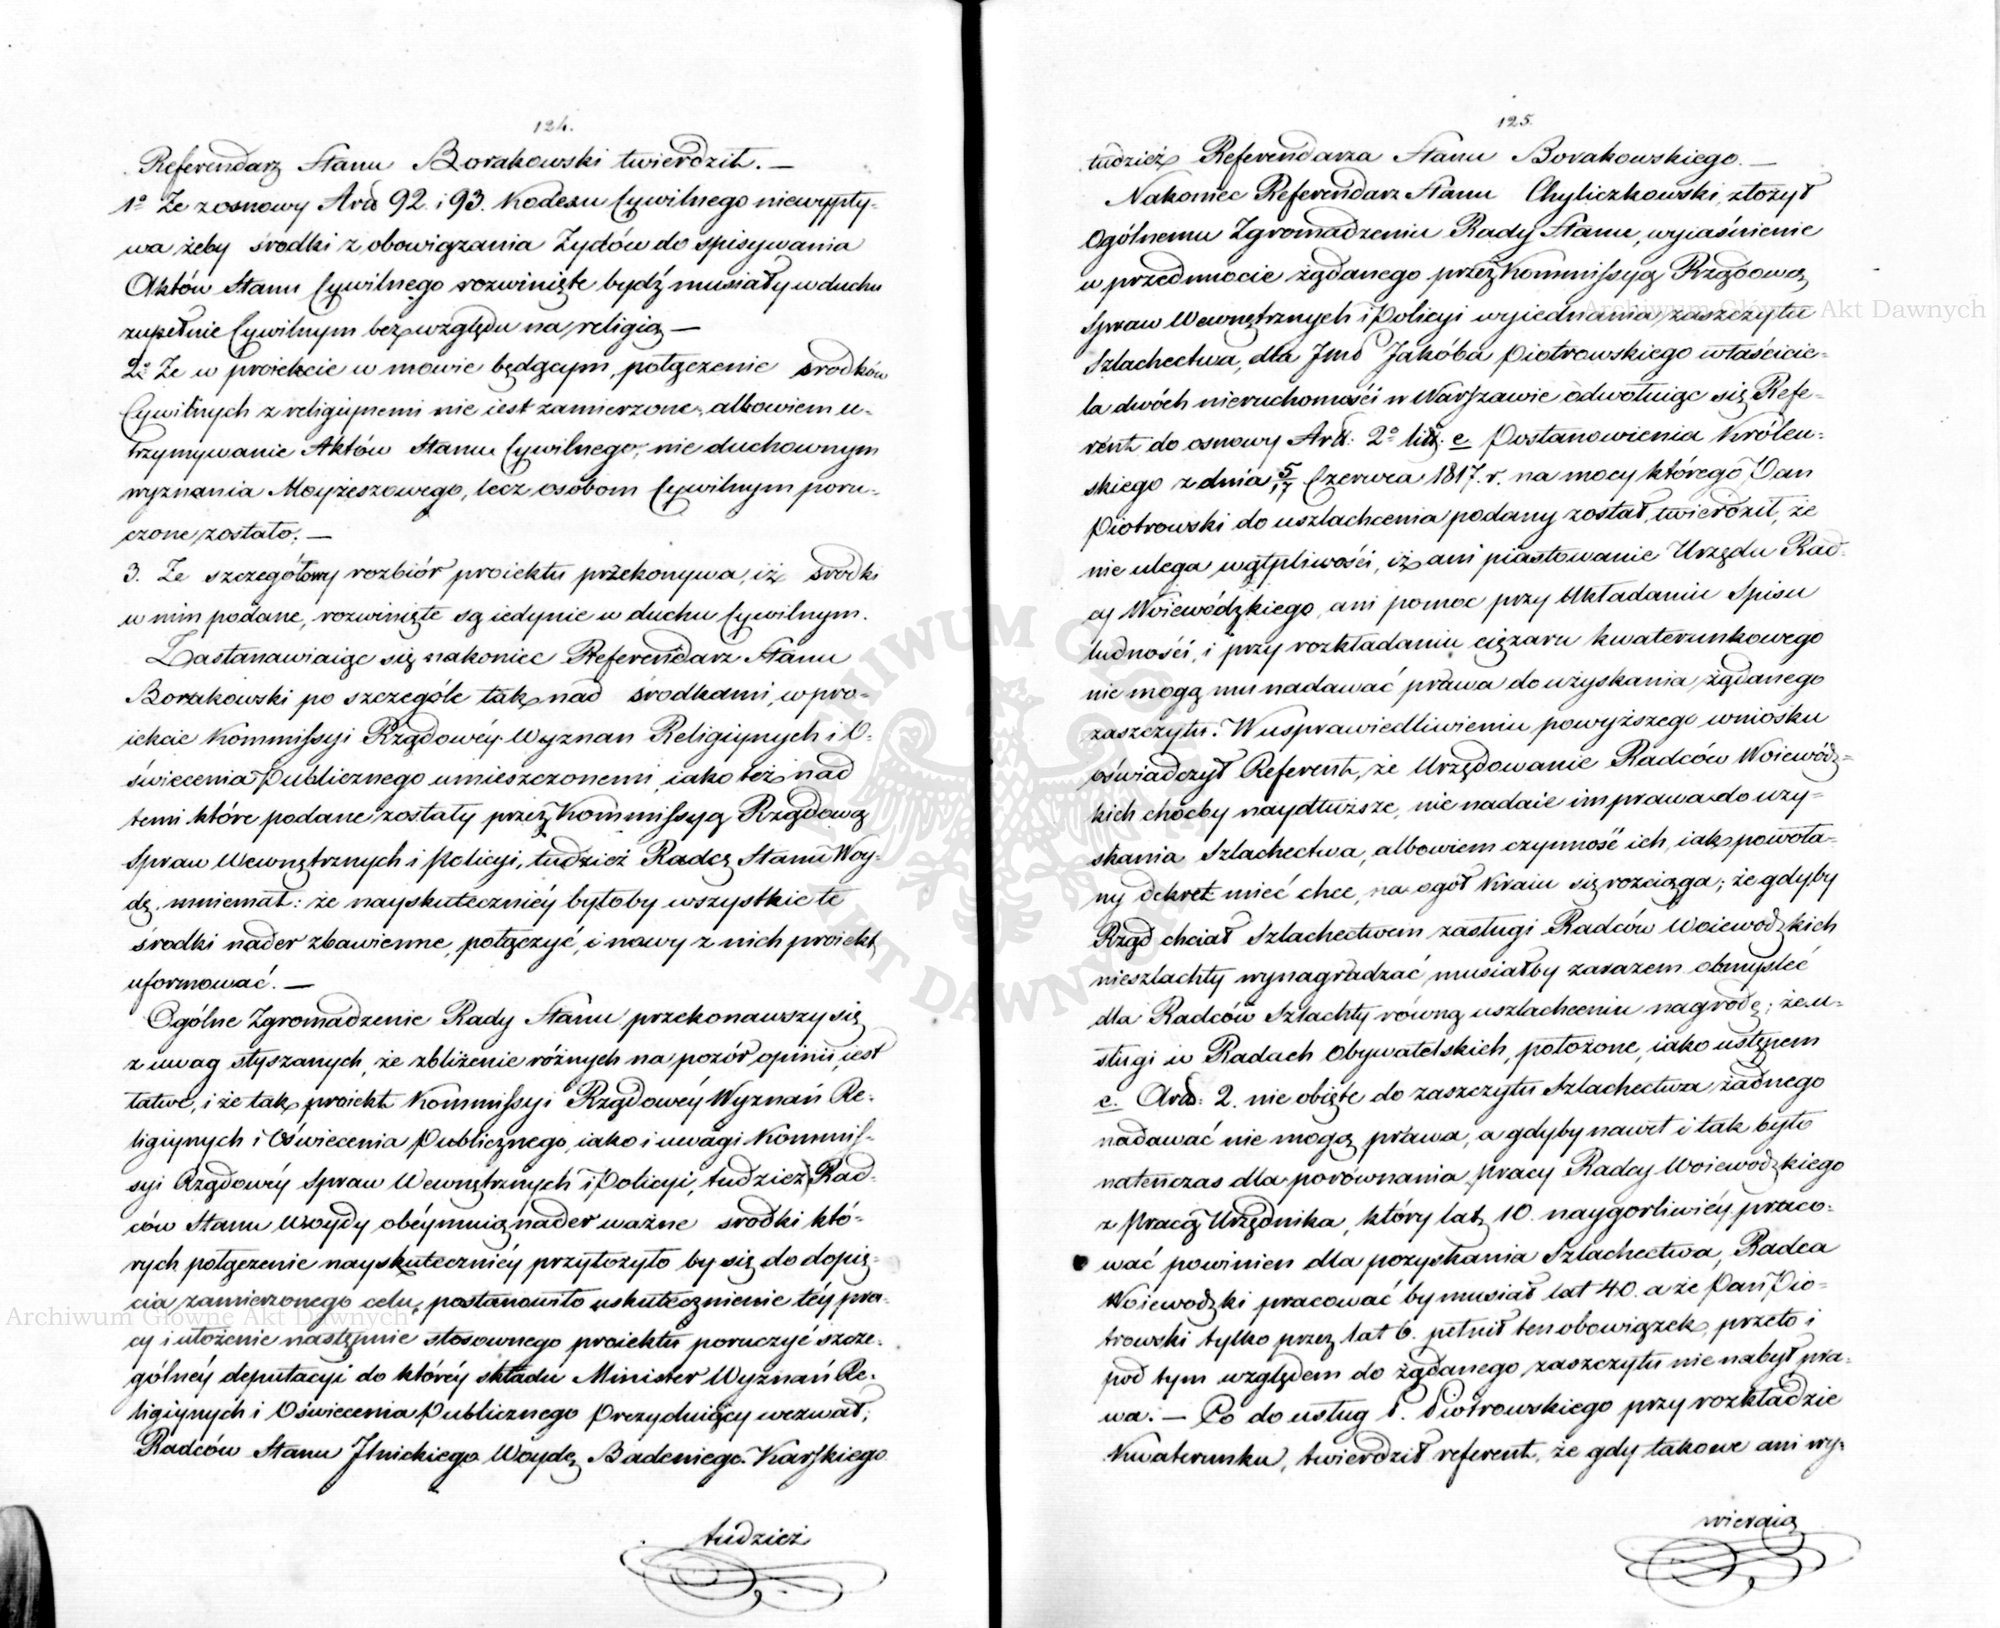 124.
Referendarz Stanu Borakowski twierdził. —
1º Ze z osnowy Art 92 i 93. Kodexu Cywilnego niewypły-
wa żeby środki z obowiązania Żydów do spisywania
Aktów Stanu Cywilnego rozwinięte bydź musiały w duchu
zupełnie Cywilnym bez względu na religią —
2º Ze w proiekcie w mowie będącym, połączenie środków
Cywilnych z religiynemi nie iest zamierzone, albowiem u-
trzymywanie Aktów Stanu Cywilnego, nie duchownym
wyznania Moyżeszowego, lecz osobom Cywilnym poru-
czone zostało. —
3. Ze szczegółowy rozbiór proiektu przekonywa, iż środki
w nim podane, rozwinięte są iedynie w duchu Cywilnym.
Zastanawiaiąc się nakoniec Referendarz Stanu
Borakowski po szczególe tak nad środkami, w pro-
iekcie Kommissyi Rządowéy Wyznań Religiynych i O-
świecenia Publicznego umieszczonemi, iako też nad
temi które podane zostały przez Kommissyą Rządową
Spraw Wewnętrznych i Policyi, tudzież Radcę Stanu Woy-
dę, mniemał: że nayskuteczniéy byłoby wszystkie te
środki nader zbawienne, połączyć, i nowy z nich proiekt
uformować. —
Ogólne Zgromadzenie Rady Stanu przekonawszy się
z uwag słyszanych, że zbliżenie różnych na pozór opinii, iest
łatwe, i że tak proiekt Kommissyi Rządowéy Wyznań Re-
ligiynych i Oświecenia Publicznego, iako i uwagi Kommis-
syi Rządowéy Spraw Wewnętrznych i Policyi, tudzież Rad-
ców Stanu Woydy obéymuią nader ważne środki któ-
rych połączenie nayskuteczniéy przyłożyło by się do dopię-
cia zamierzonego celu, postanowiło uskutecznienie téy pra-
cy i ułożenie następnie stosownego proiektu poruczyć szcze-
gólnéy deputacyi do któréy składu Minister Wyznań Re-
ligiynych i Oświecenia Publicznego Prezyduiący wezwał,
Radców Stanu Ilnickiego Woydę Badeniego Karskiego
tudzież
125.
tudzież Referendarza Stanu Borakowskiego. —
Nakoniec Referendarz Stanu Chyliczkowski, złożył
Ogólnemu Zgromadzeniu Rady Stanu, wyiaśnienie
w przedmiocie żądanego przez Kommissyą Rządową
Spraw Wewnętrznych i Policyi wyiednania zaszczytu
Szlachectwa, dla Jmć Jakóba Piotrowskiego właścicie-
la dwóch nieruchomości w Warszawie odwołuiąc się Refe-
rent do osnowy Art. 2º lit. e Postanowienia Królew-
skiego z dnia 5/17 Czerwca 1817. r. na mocy którego Pan
Piotrowski do uszlachcenia podany został, twierdził, że
nie ulega wątpliwości, iż ani piastowanie Urzędu Rad-
cy Woiewódzkiego, ani pomoc przy układaniu Spisu
ludności, i przy rozkładaniu ciężaru kwaterunkowego
nie mogą mu nadawać prawa do uzyskania żądanego
zaszczytu. W usprawiedliwieniu powyższego wniosku
oświadczył Referent, że Urzędowanie Radców Woiewódz-
kich choćby naydłuższe, nie nadaie im prawa do uzy-
skania Szlachectwa, albowiem czynność ich, iak powoła-
ny dekret mieć chce, na ogół Kraiu się rozciąga; że gdyby
Rząd chciał Szlachectwem zasługi Radców Woiewodzkich
nieszlachty wynagradzać, musiałby zarazem obmyśleć
dla Radców Szlachty równą uszlachceniu nagrodę; że u-
sługi w Radach Obywatelskich, położone, iako ustępem
e. Art: 2. nie obięte do zaszczytu Szlachectwa żadnego
nadawać nie mogą prawa, a gdyby nawet i tak było
natenczas dla porównania pracy Radcy Woiewodzkiego
z pracą Urzędnika, który lat 10. naygorliwiéy praco-
wać powinien dla pozyskania Szlachectwa, Radca
Woiewodzki pracować by musiał lat 40. a że Pan Pio-
trowski tylko przez lat 6. pełnił ten obowiązek, przeto i
pod tym względem do żądanego zaszczytu nie nabył pra-
wa. — Co do usług P. Piotrowskiego przy rozkładzie
Kwaterunku, twierdził referent, że gdy takowe ani wy-
wieraią
Archiwum Główne Akt Dawnych
Archiwum Główne Akt Dawnych
ARCHIWUM GŁÓWNE AKT DAWNYCH